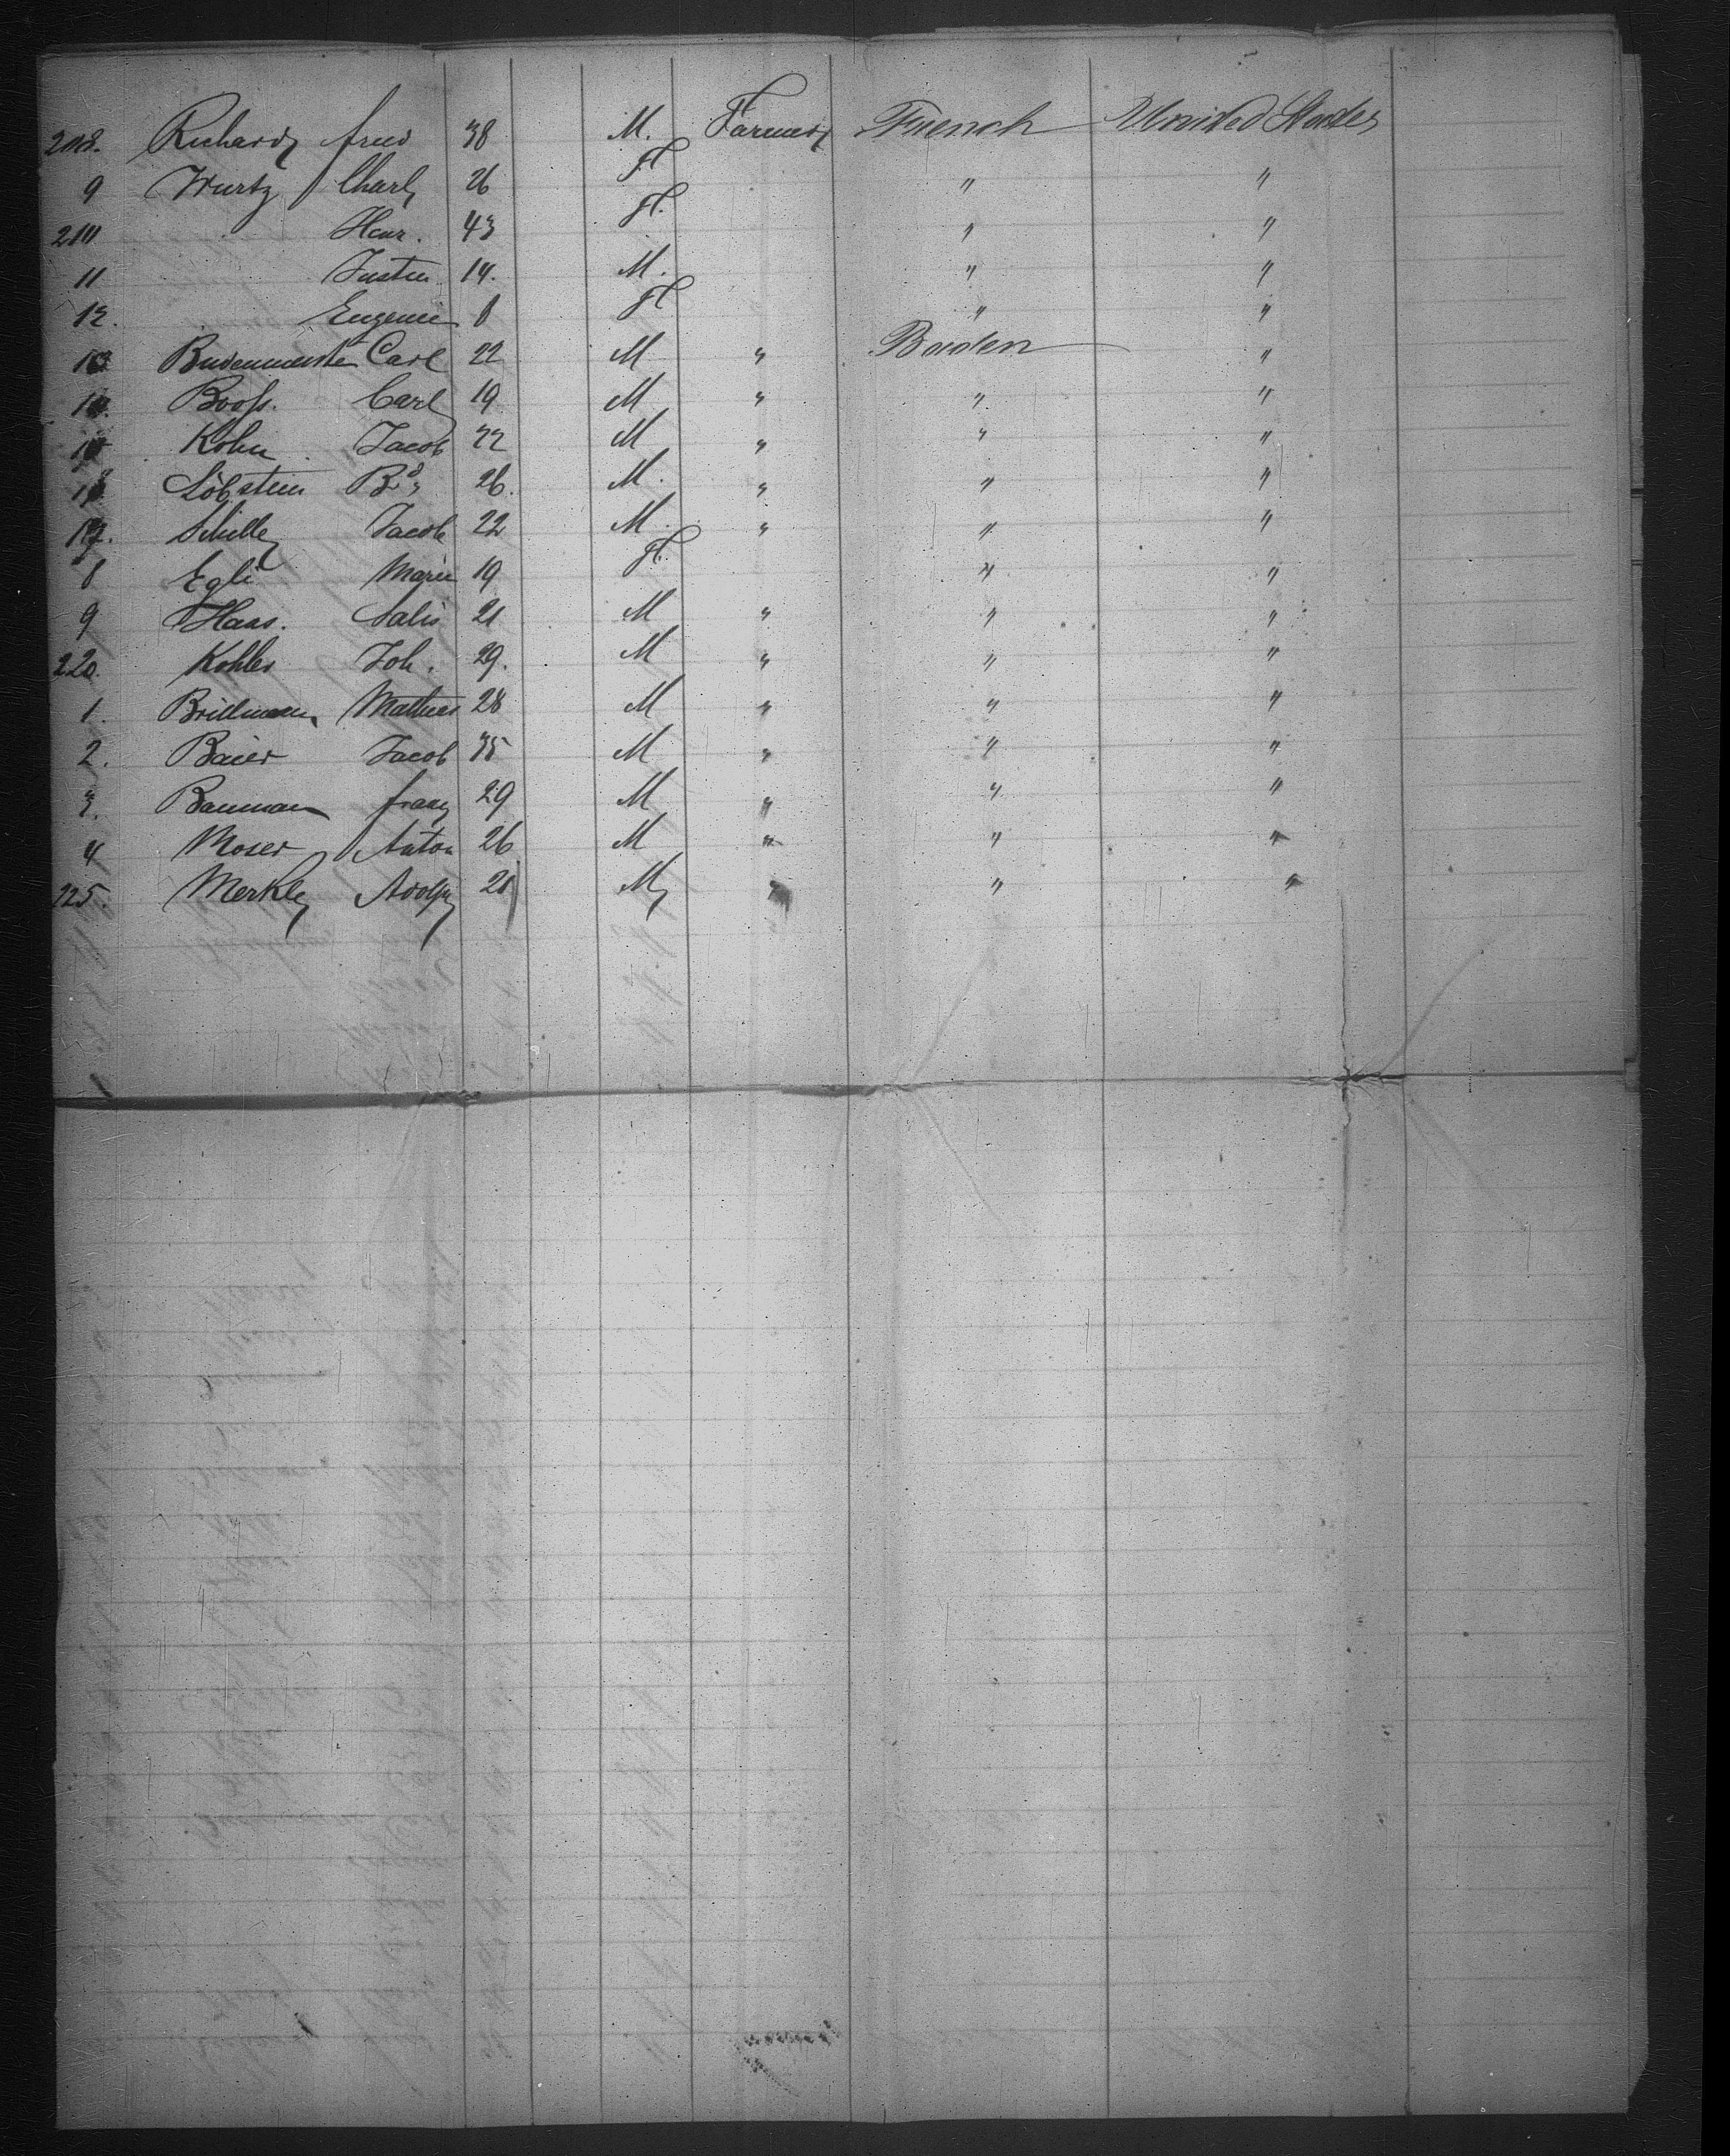 208. Richard fred 38 M. Farmer French United States
9 Wurtz Charl 26 fl " "
210 Henr. 43 fl. " "
11 Justin 14. M. " "
12. Eugenie 8 fl " "
13 Carl 22 M " Baden "
14. Booss. Carl 19 M " " "
15 Kohn Jacob 22 M " " "
16. Löbstein 26. M. " " "
17. Schille Jacob 22 M. " " "
8 Egli Marie 19 fl. " "
9 Haas. Salis 21 M " " "
220. Kohler Joh. 29. M " " "
1. Brillmann Mathias 28 M " " "
2. Baier Jacob 35 M " " "
3. Bauman franz 29 M " " "
4 Moser Anton 26 M " " "
225. Merkle Adolph M " " "